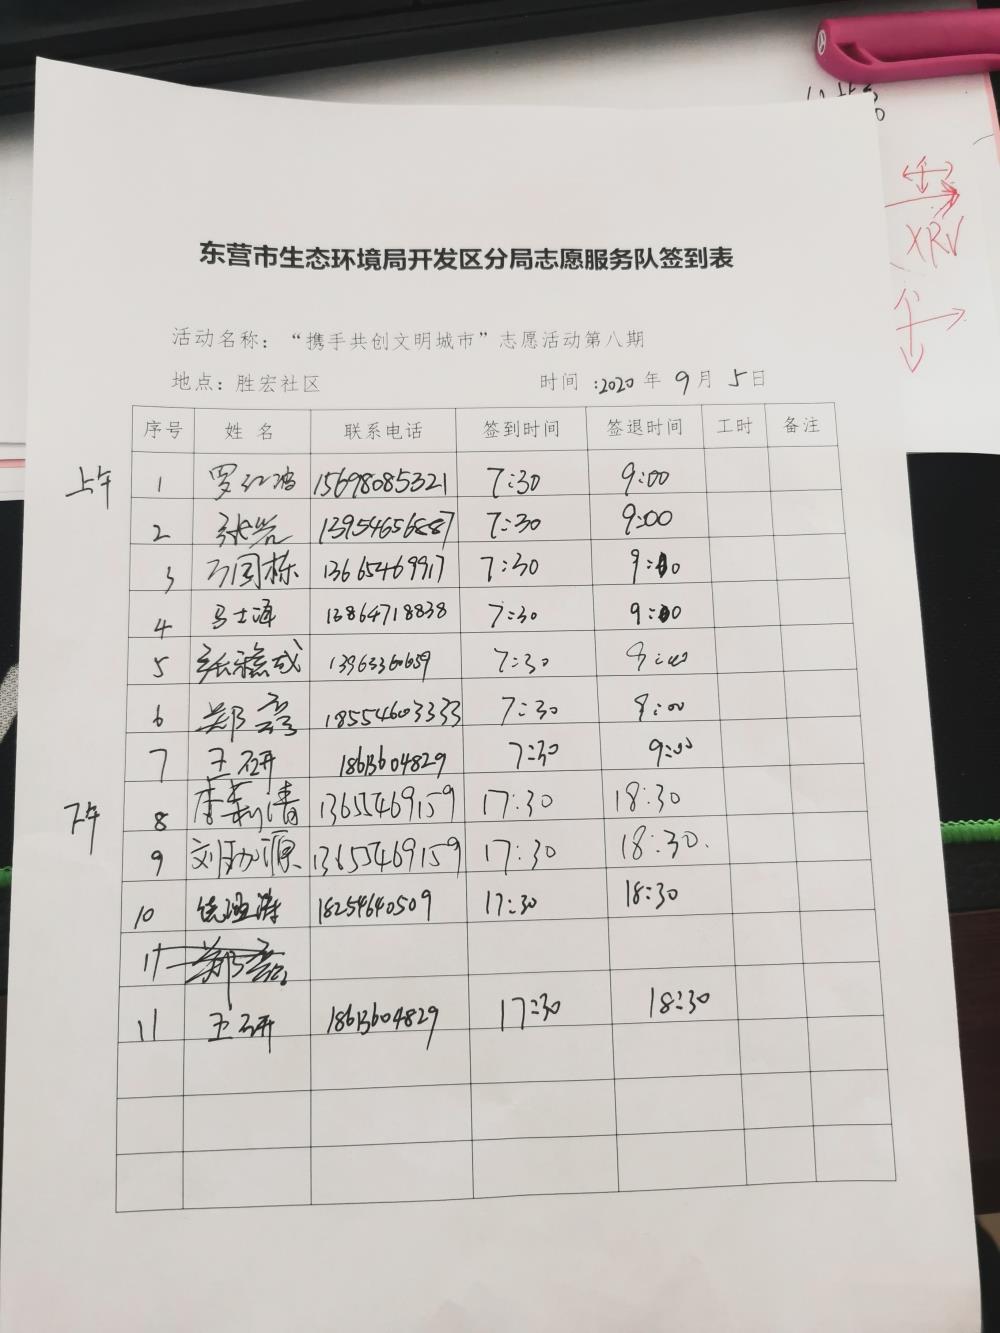 东营市生态环境局开发区分局志愿服务队签到表
活动名称：“携手共创文明城市”志愿活动第八期
地点：胜宏社区 时间：2020年9月5日
序号 姓名 联系电话 签到时间 签退时间 工时 备注
上午
1 罗红鸿 15698085321 7:30 9:00
2 张岩 13954656887 7:30 9:00
3 国栋 13665469917 7:30 9:00
4 马士海 13864718838 7:30 9:00
5 张 7:30
6 郑 18554603333 7:30
7 王研 18613604829 7:30 9:00
下午
8 李莉清 13655469159 17:30 18:30
9 刘源 13655469159 17:30 18:30.
10 18254640509 17:30 18:30
11 郑
11 王研 18613604829 17:30 18:30
XRV